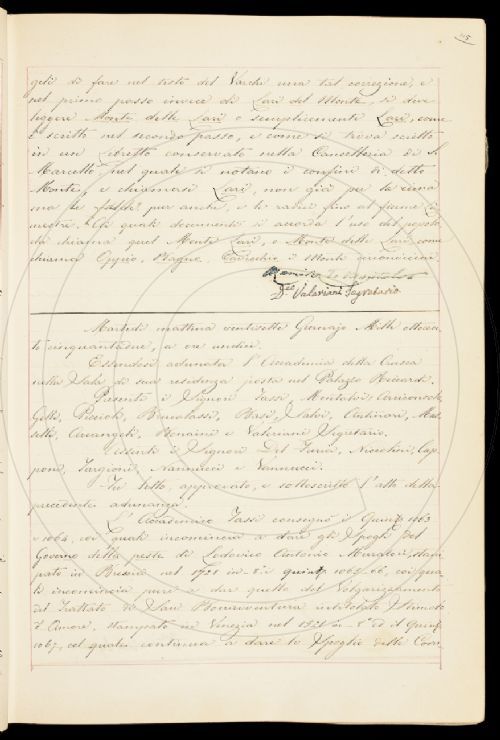 115
geti di fare nel testo del Varchi una tal correzione, e
nel primo passo invece di Lari del Monte, si deve
leggere Monte delle Lari o semplicemente Lari, come
è scritto nel secondo passo, e come si trova scritto
in un Libretto conservato nella Cancelleria di S.
Marcello, nel quale si notano i confini di detto
Monte, e chiamasi Lari, non già per la cima
ma le falde pur anche, e le radici fino al fiume
Ai quali documenti si accorda l'uso del popolo,
che chiama quel Monte Lari, o Monte delle Lari, come
chiama Oppio, Monti circonvicini.
Dr. Valeriani Segretario
Martedì mattina ventisette Gennajo Mille ottocen-
to cinquantadue, a ore undici.
Essendosi adunata l'Accademia della Crusca
nella Sala di sua residenza posta nel Palazzo Riccardi.
Presenti i Signori Tassi, Montalvi,
Gelli, Brucalassi, Basi, Salvi,
Arcangeli, e Valeriani Segretario.
Assenti i Signori Del Furia, Niccolini, Cap-
poni, Targioni, Nannucci e Vannucci.
Fu letto, approvato, e sottoscritto l'atto della
precedente adunanza.
L'Accademico Tassi consegnò i Quint. 1063
e 1064, coi quali incomincia a dare gli Spogli del
Governo della peste di Lodovico Antonio Muratori, stam-
pato in Brescia nel 1721 in 8° i quint. 1065-66, coi qua-
li incomincia pure a dar quello del Volgarizzamento
del Trattato di San Bonaventura intitolato Stimolo
d'Amore, stampato in Venezia nel 1521 in 8° ed il Quint.
1067, col quale continua a dare lo Spoglio delle